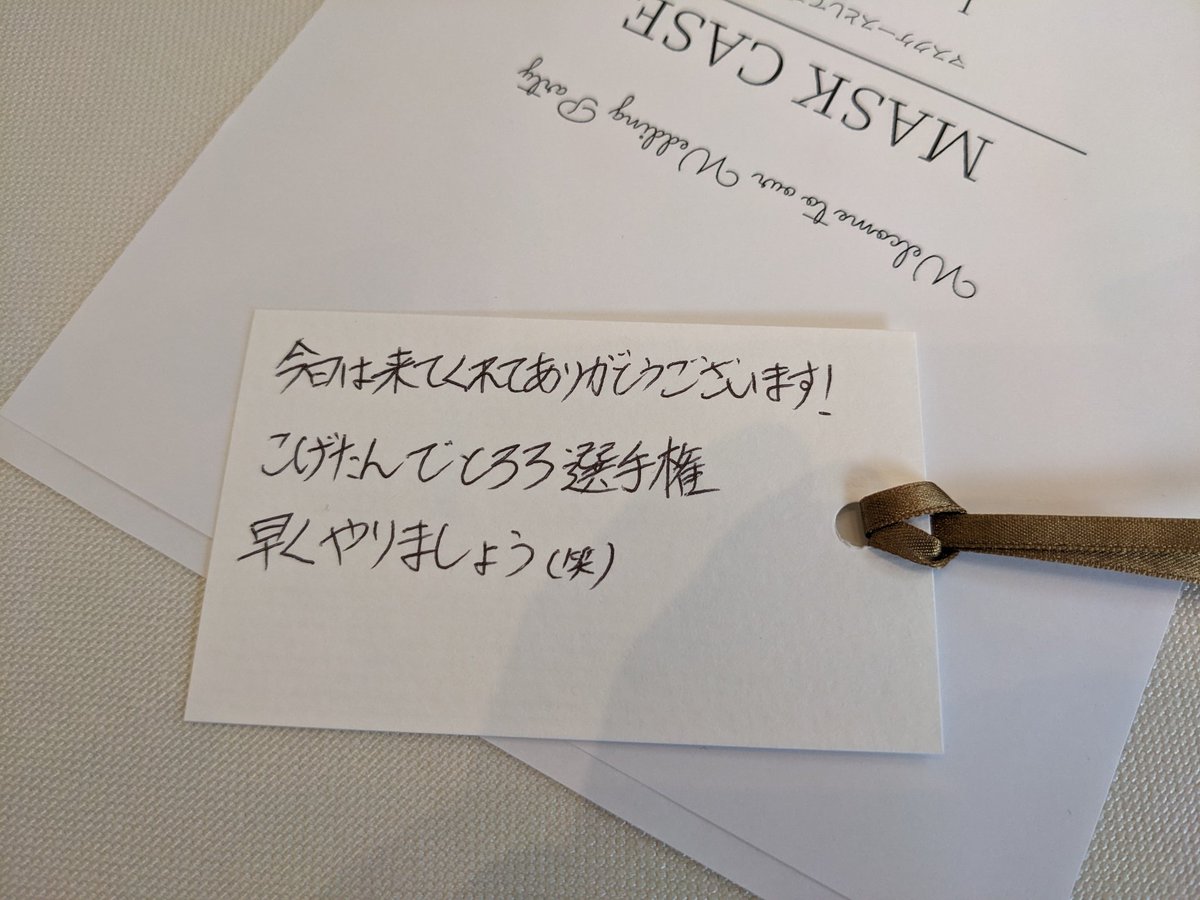 Welcome to our Wedding Party
MASK CASE
マスクケースとして
今日は来てくれてありがとうございます！
こげたんでとろろ選手権
早くやりましょう（笑）